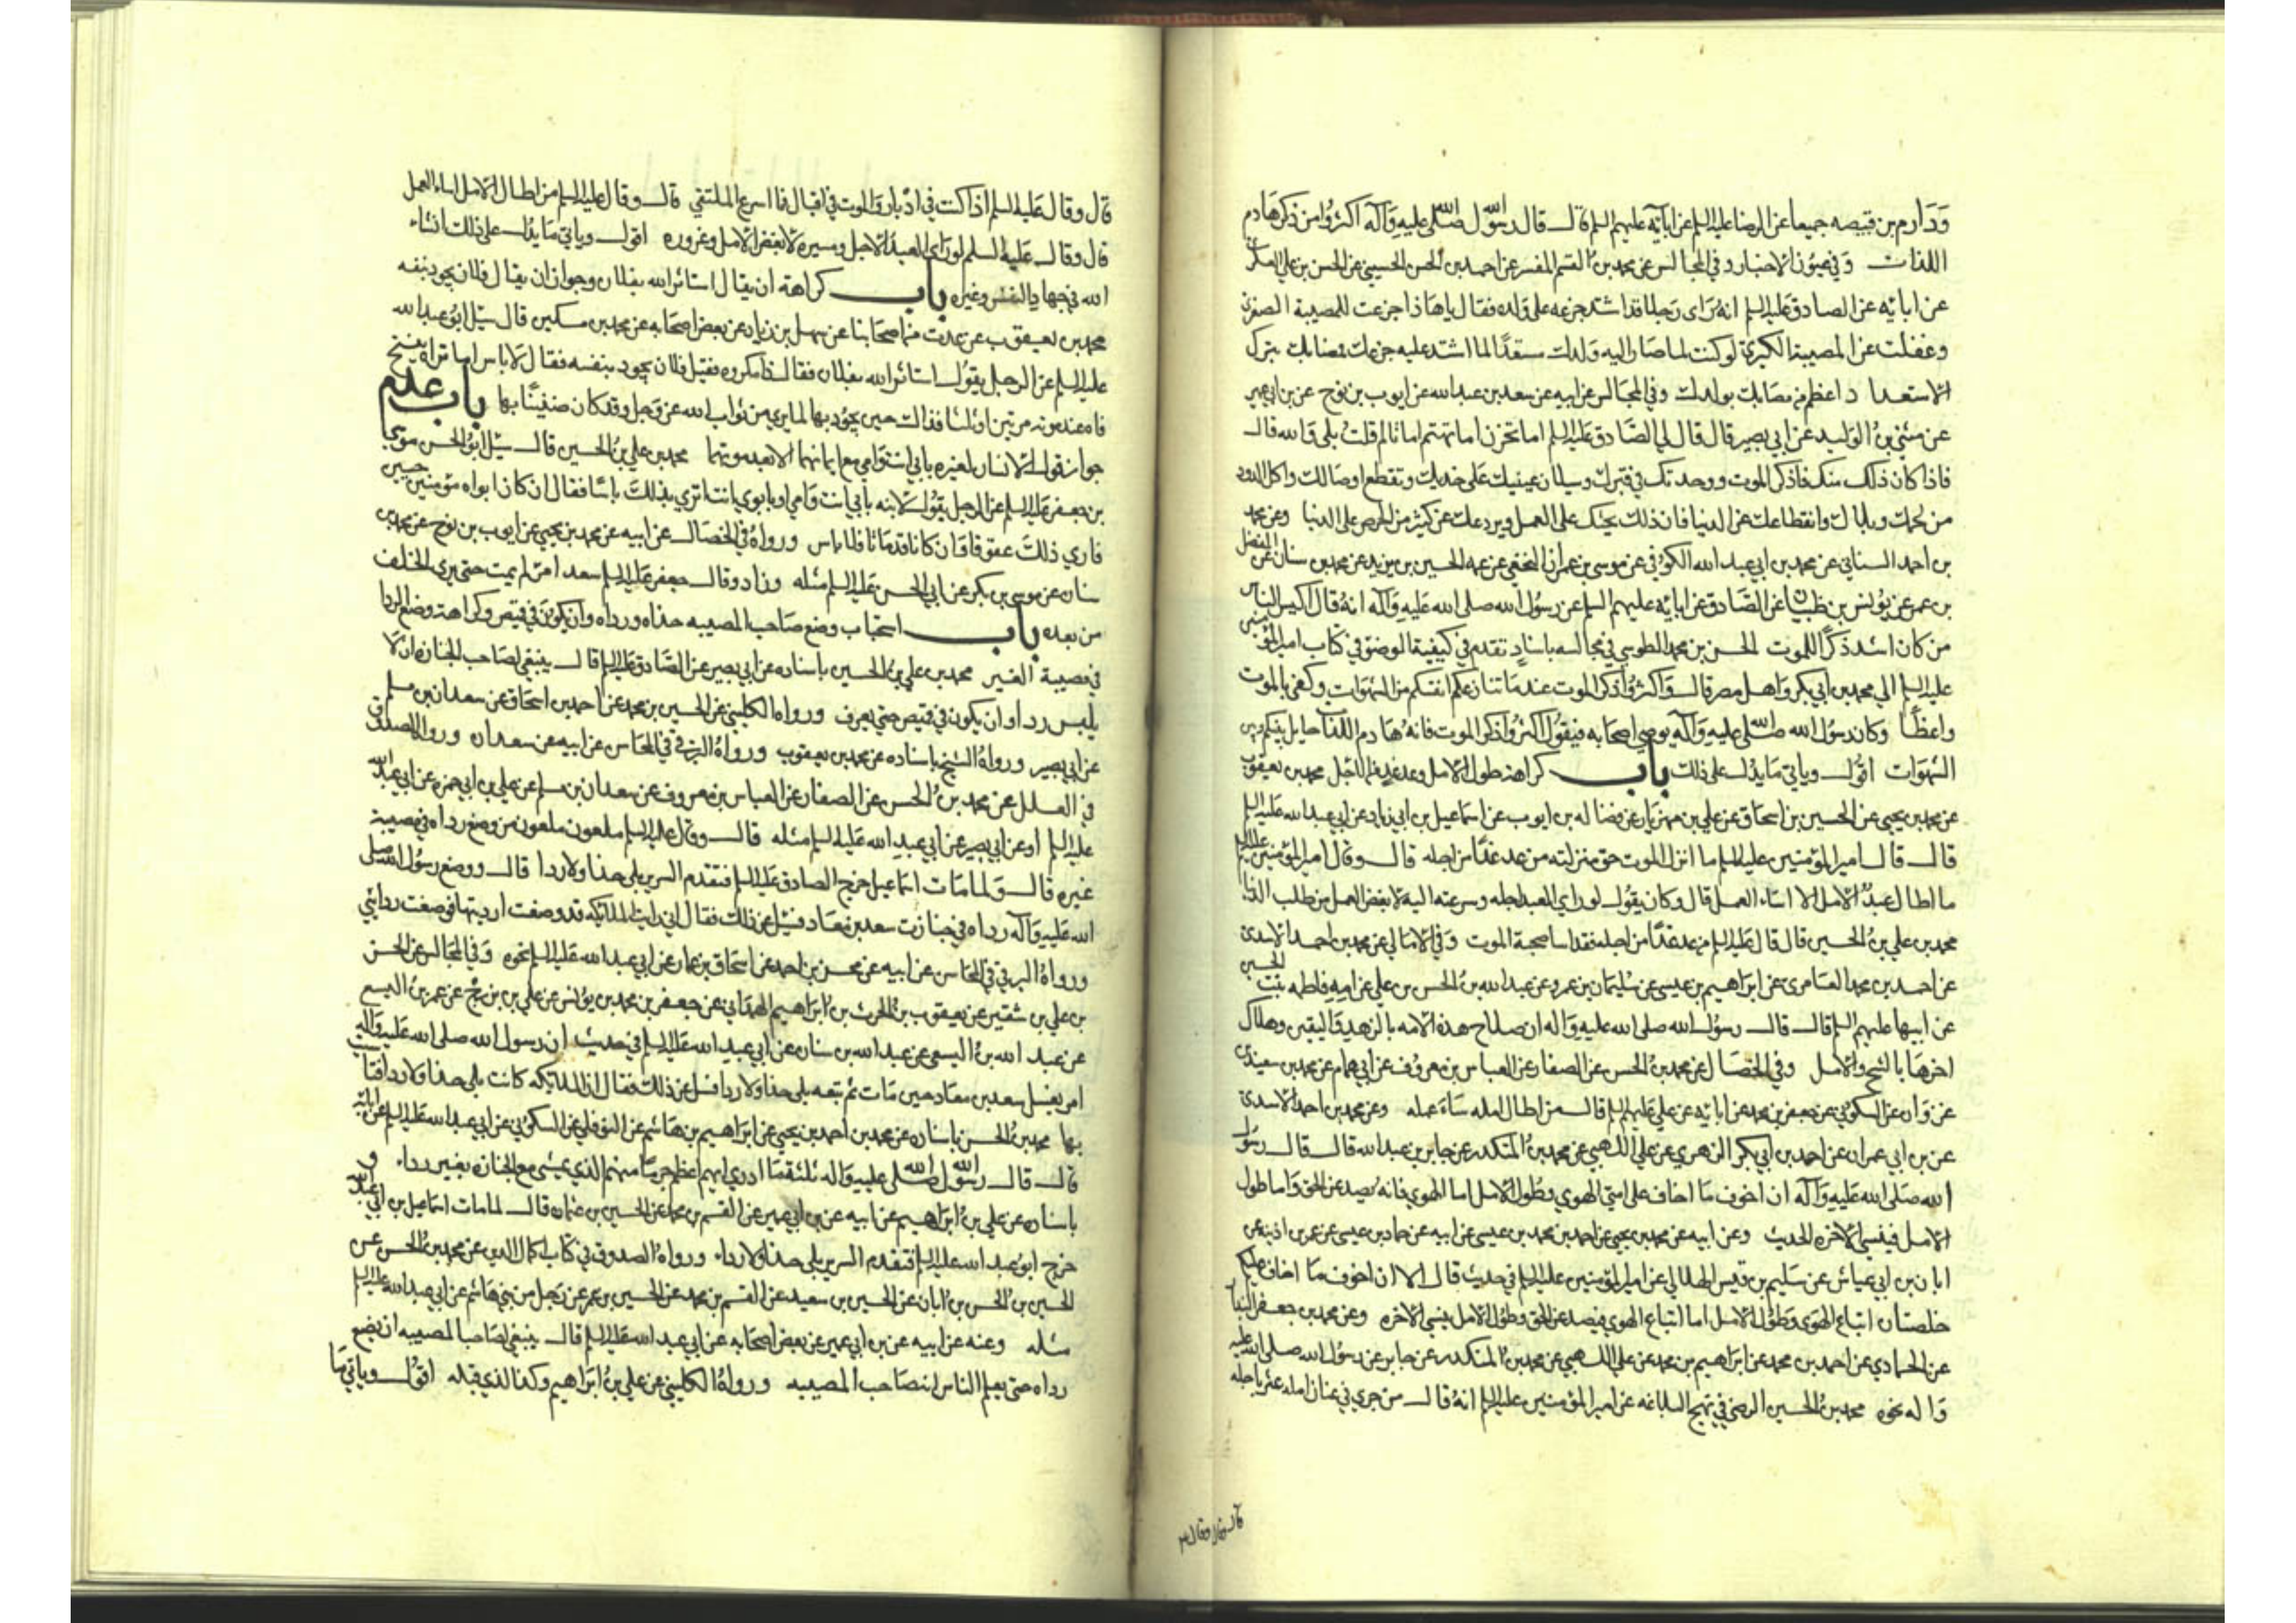 وَدَارم بن قبيصه جميعا عن الرضا عليه السلم عن ابآئه عليهم السلم قال قال رسول الله صلى الله عليه وآله اكثروا من ذكر هادم
اللذات وفي عيون الاخبار وفي المجالس عن محمد بن القسم المفسر عن احمد بن الحسن الحسيني عن الحسن بن علي العسكري
عن ابائه عن الصادق عليه السلم انه رَاى رَجلا قد اشتد جزعه على ولده فقال يا هذا جزعت للمصيبة الصغرى
وغفلت عن المصيبة الكبرى لو كنت لما صار اليه ولدك مستعدًا لما اشتد عليه جزعك فمصابك بترك
الاستعداد اعظم من مصابك بولدك وفي المجالس عن ابيه عن سعد بن عبد الله عن ايوب بن نوح عن بن ابي عمير
عن مثنى بن الوليد عن ابي بصير قال قال لي الصَّادق عليه السلم اما تحزن اما تهتم اما تالم قلت بلى والله قال
فاذا كان ذلك منك فاذكر الموت ووحدتك في قبرك وسيلان عينيك على خديك وتقطع اوصالك واكل الدود
من لحمك وبلاك وانقطاعك عن الدنيا فان ذلك يحثك على العمل ويردعك عن كثير من الحرص على الدنيا وعن محمد
بن احمد السناني عن محمد بن ابي عبد الله الكوفي عن موسى بن عمران النخعي عن عمه الحسين بن يزيد عن محمد بن سنان عن المفضل
بن عمر عن يونس بن ظبيان عن الصَّادق عن ابائه عليهم السلم عن رسول الله صلى الله عليه وآله انه قال اكيس الناس
من كان اشد ذكرًا للموت الحسن بن محمد الطوسي في مجالسه باسنادٍ تقدم في كيفية الوضوء في كتاب امير المؤمنين
عليه السلم الى محمد بن ابي بكر واهل مصر قال وَاكثروا ذكر الموت عند ما تنازعكم انفسكم من الشهوات وكفى بالموت
واعظًا وكان رسول الله صلى الله عليه وآله يوصي اصحابه فيقول اكثروا ذكر الموت فانه هادم اللذات حايل بينكم وبين
الشهوات اقول وياتي مَا يدل على ذلك باب كراهة طول الامل وعد غد من الاجل محمد بن يعقوب
عن محمد بن يحيى عن الحسين بن اسحاق عن علي بن مهزيار عن فضاله بن ايوب عن اسماعيل بن ابي زياد عن ابي عبد الله عليه السلم
قال قال امير المؤمنين عليه السلم ما انزل الموت حق منزلته من عد غدًا من اجله قال وقال امير المؤمنين عليه السلم
ما اطال عبدٌ الامل الا اساء العمل قال وكان يقول لو راى العبد اجله وسرعته اليه لابغض العمل من طلب الدنيا
محمد بن علي بن الحسين قال قال عليه السلم من عد غدًا من اجله فقد اساء صحبة الموت وَفي الامالي عن محمد بن احمد الاسدي
عن احمد بن محمد العامري عن ابراهيم بن عيسى عن سليمان بن عمرو عن عبد الله بن الحسن بن علي عن امه فاطمه بنت الحسين
عن ابيها عليهم السلم قال قال رسول الله صلى الله عليه وَاله ان صلاح هذه الامه بالزهد وَاليقين وهلاك
اخرها بالشح والامل وفي الخصَال عن محمد بن الحسن عن الصفار عن العباس بن معروف عن ابي همام عن محمد بن سعيد بن
غزوان عن السكوني عن جعفر بن محمد عن ابائه عن علي عليهم السلم قال من اطال امله سَاءَ عمله وعن محمد بن احمد الاسدي
عن بن ابي عمران عن احمد بن ابي بكر الزهري عن علي اللهبي عن محمد بن المنكدر عن جابر بن عبد الله قال قال رسول
الله صلى الله عليه وآله ان اخوف مَا اخاف على امتي الهوى وطول الامل اما الهوى فانه يصد عن الحق وَاما طول
الامل فينسي الاخره الحديث وعن ابيه عن محمد بن يحيى عن احمد بن محمد بن عيسى عن ابيه عن حماد بن عيسى عن عمر بن اذينه عن
ابان بن ابي عياش عن سليم بن قيس الهلالي عن امير المؤمنين عليه السلم في حديث قال الا ان اخوف مَا اخاف عليكم
خلصتان اتباع الهوى وطول الامل اما اتباع الهوى فيصد عن الحق وطول الامل ينسي الاخره وعن محمد بن جعفر البندار
عن الحمادي عن احمد بن محمد عن ابراهيم بن محمد عن علي اللهبي عن محمد بن المنكدر عن جابر عن رسول الله صلى الله عليه
وَاله نحوه محمد بن الحسين الرضى في نهج البلاغه عن امير المؤمنين عليه السلم انه قال من جرى في عنان امله عثر باجله
قال وقال ع
قال وقال عليه السلم اذا كنت في ادبار وَالموت في اقبال فما اسرع الملتقي قال وقال عليه السلم من اطال الامل اساء العمل
قال وقال عليه السلم لو راى العبد الاجل ومسيره لابغض الامل وغروره اقول وياتي مَا يدل على ذلك انشاء
الله في جهاد النفس وغيره باب كراهة ان يقال استاثر الله بفلان وجواز ان يقال فلان يجود بنفسه
محمد بن يعقوب عن عدت من اصحابنا عن سهل بن زياد عن بعض اصحابه عن محمد بن مسكين قال سئل ابو عبد الله
عليه السلم عن الرجل يقول استاثر الله بفلان فقال ذا مكروه فقيل فلان يجود بنفسه فقال لا باس اما تراه يفتح
فاه عند موته مرتين او ثلثا فذاك حين يجود بها لما يرى من ثواب الله عز وَجل وقد كان ضنينًا بها باب عدم
جواز قول الانسان لغيره بابي انت وامي مع ايمانهما الا بعد موتهما محمد بن علي بن الحسين قال سئل ابو الحسن موسى
بن جعفر عليه السلم عن الرجل يقول لابنه بابي انت وَامي او بابوي انت اترى بذلك باسًا فقال ان كان ابواه مؤمنين حيين
فارى ذلك عقوقا وَان كانا قد مَاتا فلا باس ورواه في الخصال عن ابيه عن محمد بن يحيى عن ايوب بن نوح عن محمد بن
سنان عن موسى بن بكر عن ابي الحسن عليه السلم مثله وزاد وقال جعفر عليه السلم سعد امرؤ لم يمت حتى يرى الخلف
من بعده باب استحباب وضع صَاحب المصيبه حذاه ورداه وان يكون في قميص وكراهة وضع الردا
في مصيبة الغير محمد بن علي بن الحسين باسناده عن ابي بصير عن الصَّادق عليه السلم قال ينبغي لصَاحب الجنازه ان لا
يلبس ردا وان يكون في قميص حتى يعرف ورواه الكليني عن الحسين بن محمد عن احمد بن اسحاق عن سعدان بن مسلم
عن ابي بصير ورواه الشيخ باسناده عن محمد بن يعقوب ورواه البرقي في المحاسن عن ابيه عن سعدان ورواه الصدوق
في العلل عن محمد بن الحسن عن الصفار عن العباس بن معروف عن سعدان بن مسلم عن علي بن ابي حمزه عن ابي عبد الله
عليه السلم او عن ابي بصير عن ابي عبد الله عليه السلم مثله قال وقال عليه السلم ملعون ملعون من وضع رداه في مصيبة
غيره قال وَلما مَات اسماعيل خرج الصادق عليه السلم فتقدم السرير بلا حذا ولا ردا قال ووضع رسول الله صلى
الله عليه وَآله رداه في جنازت سعد بن معاد فسئل عن ذلك فقال اني رايت الملائكه قد وضعت ارديتها فوضعت ردائي
ورواه البرقي في المحاسن عن ابيه عن محسن بن احمد عن اسحاق بن عمار عن ابي عبد الله عليه السلم نحوه وَفي المجالس عن الحسن
بن علي بن شقير عن يعقوب بن الحرث بن ابراهيم الهمداني عن جعفر بن محمد بن يونس عن علي بن بزرج عن عمر بن اليسع
عن عبد الله بن اليسع عن عبد الله بن سنان عن ابي عبد الله عليه السلم في حديث ان رسول الله صلى الله عليه وآله
امر بغسل سعد بن معاد حين مَات ثم تبعه بلى حذا ولا ردا فسل عن ذلك فقال ان الملائكه كانت بلى حذا ولا ردا فتاسيت
بها محمد بن الحسن باسناده عن محمد بن احمد بن يحيى عن ابراهيم بن هاشم عن النوفلي عن السكوني عن ابي عبد الله عليه السلم عن ابائه
قال قال رسول الله صلى الله عليه وَاله ثلثة مَا ادري ايهم اعظم جرمًا منهم الذي يمشي مع الجنازه بغير رداء و
باسناده عن علي بن ابراهيم عن ابيه عن بن ابي عمير عن القسم بن محمد عن الحسين بن عثمان قال لما مات اسماعيل بن ابي عبد الله
خرج ابو عبد الله عليه السلم فتقدم السرير بلى حذا ولا رداء ورواه الصدوق في كتاب اكمال الدين عن محمد بن الحسن عن
الحسين بن الحسن بن ابان عن الحسين بن سعيد عن القسم بن محمد عن الحسين بن عمر عن رَجل من بني هاشم عن ابي عبد الله عليه السلم
مثله وعنه عن ابيه عن بن ابي عمير عن بعض اصحابه عن ابي عبد الله عليه السلم قال ينبغي لصَاحب المصيبه ان يضع
رداه حتى يعلم الناس انه صَاحب المصيبه ورواه الكليني عن علي بن ابراهيم وكذا الذي قبله اقول وياتي مَا